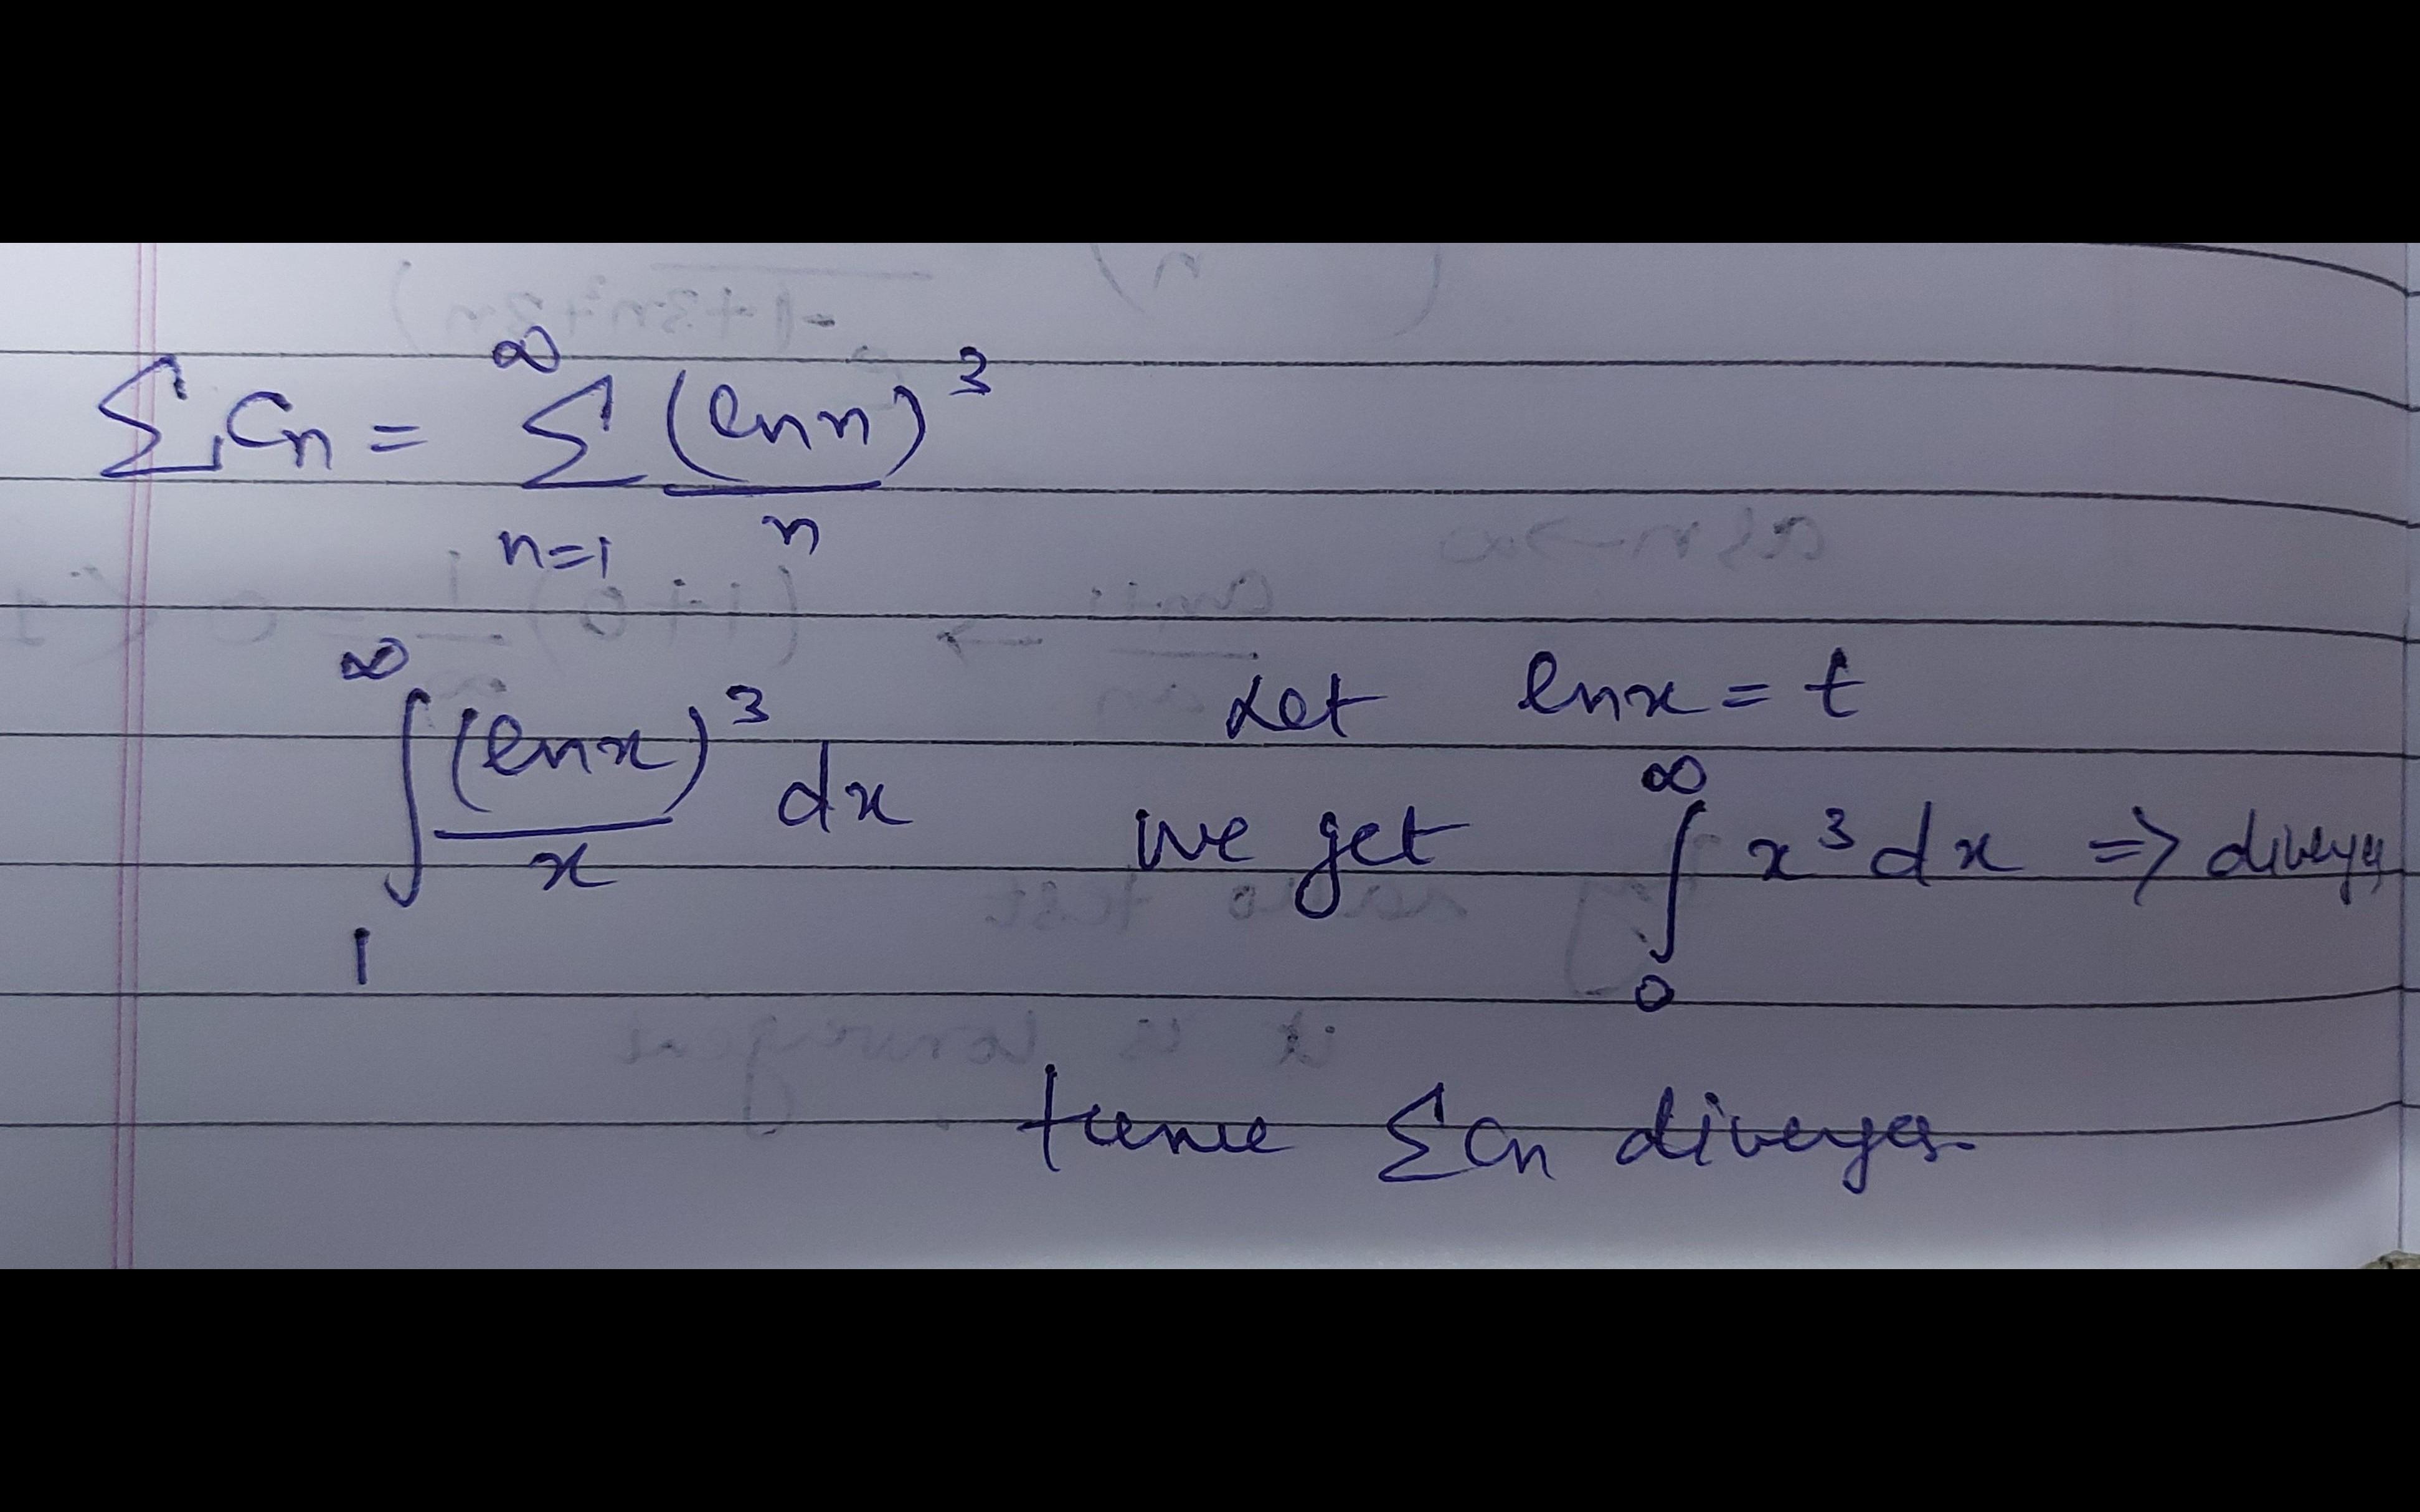 ∑ Cn = ∞∑n=1 (ln n)³/n
∞∫1 (ln x)³/x dx Let ln x = t
we get ∞∫0 x³ dx ⇒ diverges
Hence ∑Cn diverges.